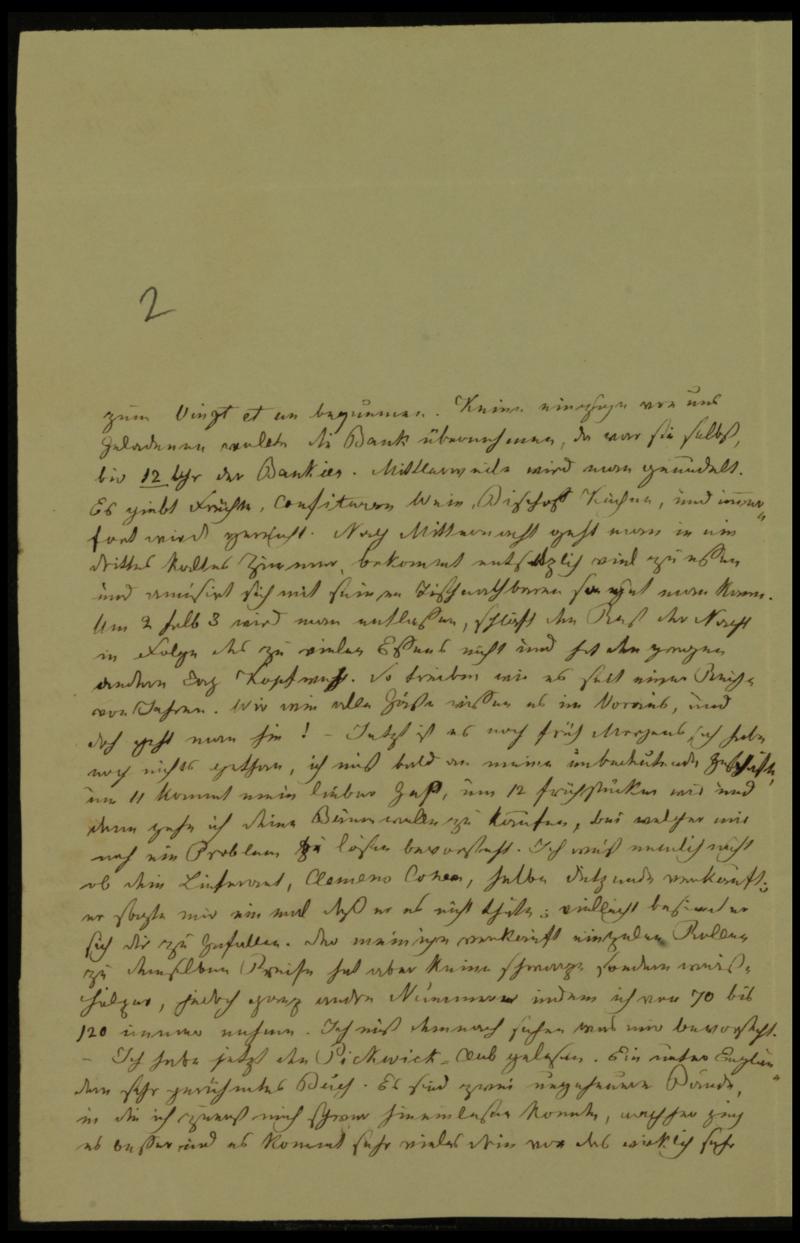 2
zum Vingt et un bequemen. Keine einzige von uns
Geladenen wollte die Bank übernehmen, da war sie selbst,
bis 12 Uhr der Bankier. Mittlerweile wird man genudelt.
Es giebt Früchte, Confituren Wein, Bischof Kuchen, und immer
fort wird gereicht. Nach Mitternacht geht man in ein
drittes kaltes Zimmer, bekommt entsetzlich viel zu essen
und amüsirt sich mit seinen Tischnachbaren so gut man kann.
Um 2 halb 3 wird man entlassen, schläft den Rest der Nacht
in Folge des zu vielen Essens nicht und hat den ganzen
andern Tag Kopfweh. So treiben wir es seit einer Reihe
von Jahren. Wir wie alle Gäste wissen es im Voraus, und
doch geht man hin! – Jetzt ist es noch früh Morgens, ich habe
noch nichts gethan, ich muß bald an meine unbedeutende Geschäfte,
um 11 kommt mein lieber Gast, um 12 frühstücken wir und
dann gehe ich deine Baumwolle zu kaufen, bei welcher mir
noch ein Problem zu lösen bevorsteht. Ich weiß nemlich nicht
ob dein Lieferant, Clemens Conen, halbe Dutzende verkauft;
er sagte mir ein mal daß er es nicht thäte; vielleicht besinnt er
sich dir zu Gefallen. Der meinige verkauft einzelne Rollen
zu demselben Preise hat aber keine schwarze sondern weiß-
hölzer, jedoch ganz andre Nummern indem ich von 70 bis
120 immer nehme. Ich muß demnach sehen was mir bevorsteht.
– Ich habe jetzt den Pickwick-Club gelesen. Ein unter Englän-
dern sehr gerühmtes Buch. Es sind zwei ungeheure Bände,
in die ich zuerst mich schwer hineinlesen konnte, nachher ging
es besser und es kommt sehr vieles drin vor das wirklich sehr